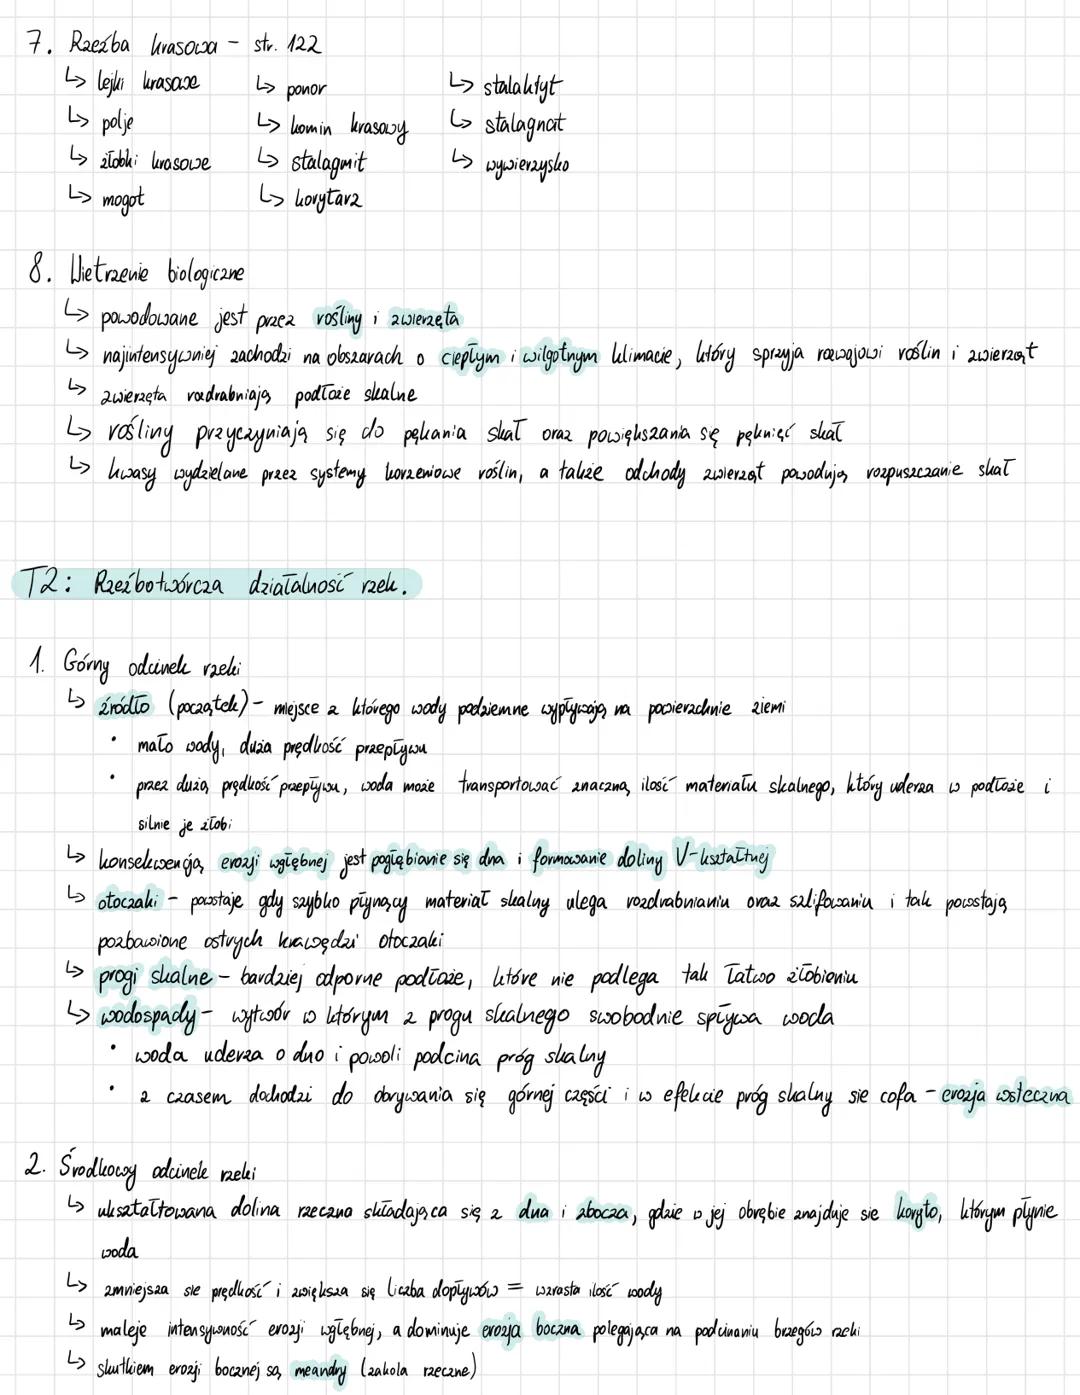 7. Rzeźba krasowa - str. 122
↳ lejki krasowe ↳ ponor ↳ stalaktyt
↳ polje ↳ komin krasowy ↳ stalagnat
↳ żłobki krasowe ↳ stalagmit ↳ wywierzysko
↳ mogot ↳ korytarz
8. Wietrzenie biologiczne
↳ powodowane jest przez rośliny i zwierzęta
↳ najintensywniej zachodzi na obszarach o ciepłym i wilgotnym klimacie, który sprzyja rozwojowi roślin i zwierząt
↳ zwierzęta rozdrabniają podłoże skalne
↳ rośliny przyczyniają się do pękania skał oraz powiększania się pęknięć skał
↳ kwasy wydzielane przez systemy korzeniowe roślin, a także odchody zwierząt powodują rozpuszczanie skał
T2: Rzeźbotwórcza działalność rzek.
1. Górny odcinek rzeki
↳ źródło (początek) - miejsce z którego wody podziemne wypływają na powierzchnie ziemi
• mało wody, duża prędkość przepływu
• przez dużą prędkość przepływu, woda może transportować znaczną ilość materiału skalnego, który uderza w podłoże i
silnie je żłobi
↳ konsekwencją erozji wgłębnej jest pogłębianie się dna i formowanie doliny V-kształtnej
↳ otoczaki - powstaje gdy szybko płynący materiał skalny ulega rozdrabnianiu oraz szlifowaniu i tak powstają
pozbawione ostrych krawędzi otoczaki
↳ progi skalne - bardziej odporne podłoże, które nie podlega tak łatwo żłobieniu
↳ wodospady - wytwór w którym z progu skalnego swobodnie spływa woda
• woda uderza o dno i powoli podcina próg skalny
• z czasem dochodzi do obrywania się górnej części i w efekcie próg skalny sie cofa - erozja wsteczna
2. Środkowy odcinek rzeki
↳ ukształtowana dolina rzeczna składająca się z dna i zbocza, gdzie w jej obrębie znajduje sie koryto, którym płynie
woda
↳ zmniejsza sie prędkość i zwiększa się liczba dopływów = wzrasta ilość wody
↳ maleje intensywność erozji wgłębnej, a dominuje erozja boczna polegająca na podcinaniu brzegów rzeki
↳ skutkiem erozji bocznej są meandry (zakola rzeczne)